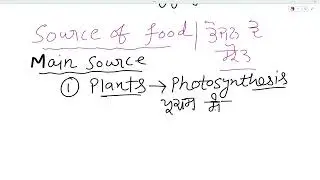 Source of food | ਭੋਜਨ ਦੇ
ਸ੍ਰੋਤ
Main Source
① Plants → Photosynthesis